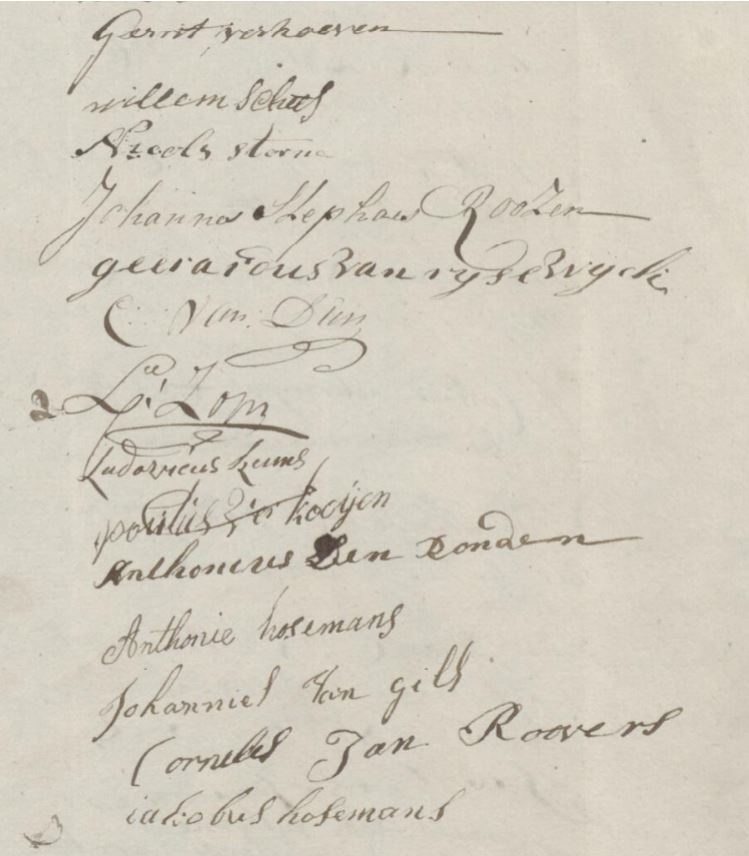 Gerrit verhoeven
willem Schus
Johannes Stephaes Roozen
geerardus van rysewyck
C. Van Dun
Ludovicus kums
kooijen
Anthonius Den Donden
Anthonie hosemans
Johannies Van gils
Cornelus Jan Roovers
iakobus hosemans